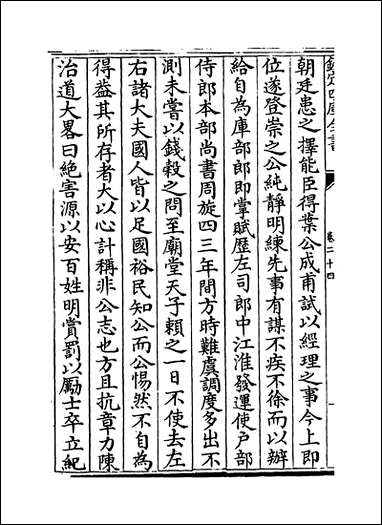 欽定四庫全書
卷二十四
朝廷患之擇能臣得葉公成甫試以經理之事今上即
位遂登崇之公純靜明練先事有謀不疾不徐而以辦
給自為庫部郎即掌賦歷左司郎中江淮發運使戶部
侍郎本部尚書周旋四三年間方時難虞調度多出不
測未嘗以錢榖之問至廟堂天子頼之一日不使去左
右諸大夫國人皆以足國裕民知公而公惕然不自為
得葢其所存者大以心計稱非公志也方且抗章力陳
治道大畧曰絶害源以安百姓明賞罰以勵士卒立紀